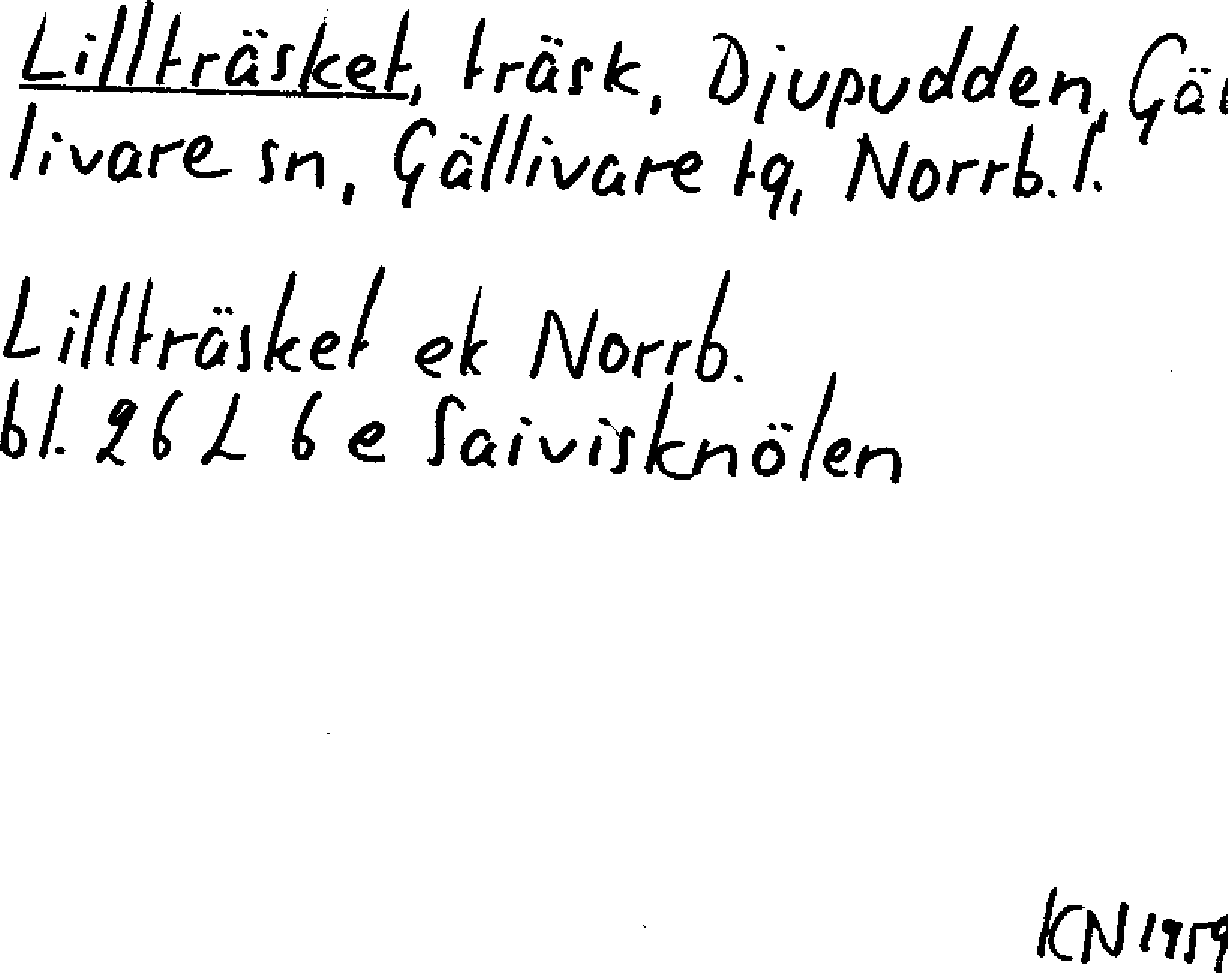 Lillträsket, träsk, Djupudden, Gäl
livare sn, Gällivare tg, Norrb. l.
Lillträsket ek Norrb.
bl. 26 L 6 e Saivisknölen
KN 1959